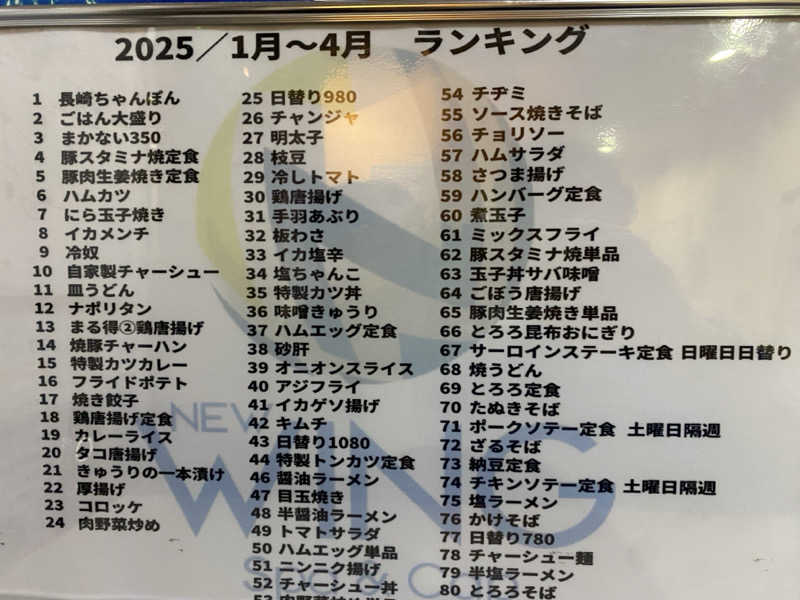 2025／1月～4月　ランキング
1 長崎ちゃんぽん
2 ごはん大盛り
3 まかない350
4 豚スタミナ焼定食
5 豚肉生姜焼き定食
6 ハムカツ
7 にら玉子焼き
8 イカメンチ
9 冷奴
10 自家製チャーシュー
11 皿うどん
12 ナポリタン
13 まる得②鶏唐揚げ
14 焼豚チャーハン
15 特製カツカレー
16 フライドポテト
17 焼き餃子
18 鶏唐揚げ定食
19 カレーライス
20 タコ唐揚げ
21 きゅうりの一本漬け
22 厚揚げ
23 コロッケ
24 肉野菜炒め
25 日替り980
26 チャンジャ
27 明太子
28 枝豆
29 冷しトマト
30 鶏唐揚げ
31 手羽あぶり
32 板わさ
33 イカ塩辛
34 塩ちゃんこ
35 特製カツ丼
36 味噌きゅうり
37 ハムエッグ定食
38 砂肝
39 オニオンスライス
40 アジフライ
41 イカゲソ揚げ
42 キムチ
43 日替り1080
44 特製トンカツ定食
46 醤油ラーメン
47 目玉焼き
48 半醤油ラーメン
49 トマトサラダ
50 ハムエッグ単品
51 ニンニク揚げ
52 チャーシュー丼
54 チヂミ
55 ソース焼きそば
56 チョリソー
57 ハムサラダ
58 さつま揚げ
59 ハンバーグ定食
60 煮玉子
61 ミックスフライ
62 豚スタミナ焼単品
63 玉子丼サバ味噌
64 ごぼう唐揚げ
65 豚肉生姜焼き単品
66 とろろ昆布おにぎり
67 サーロインステーキ定食 日曜日日替り
68 焼うどん
69 とろろ定食
70 たぬきそば
71 ポークソテー定食 土曜日隔週
72 ざるそば
73 納豆定食
74 チキンソテー定食 土曜日隔週
75 塩ラーメン
76 かけそば
77 日替り780
78 チャーシュー麺
79 半塩ラーメン
80 とろろそば
NEW
WING